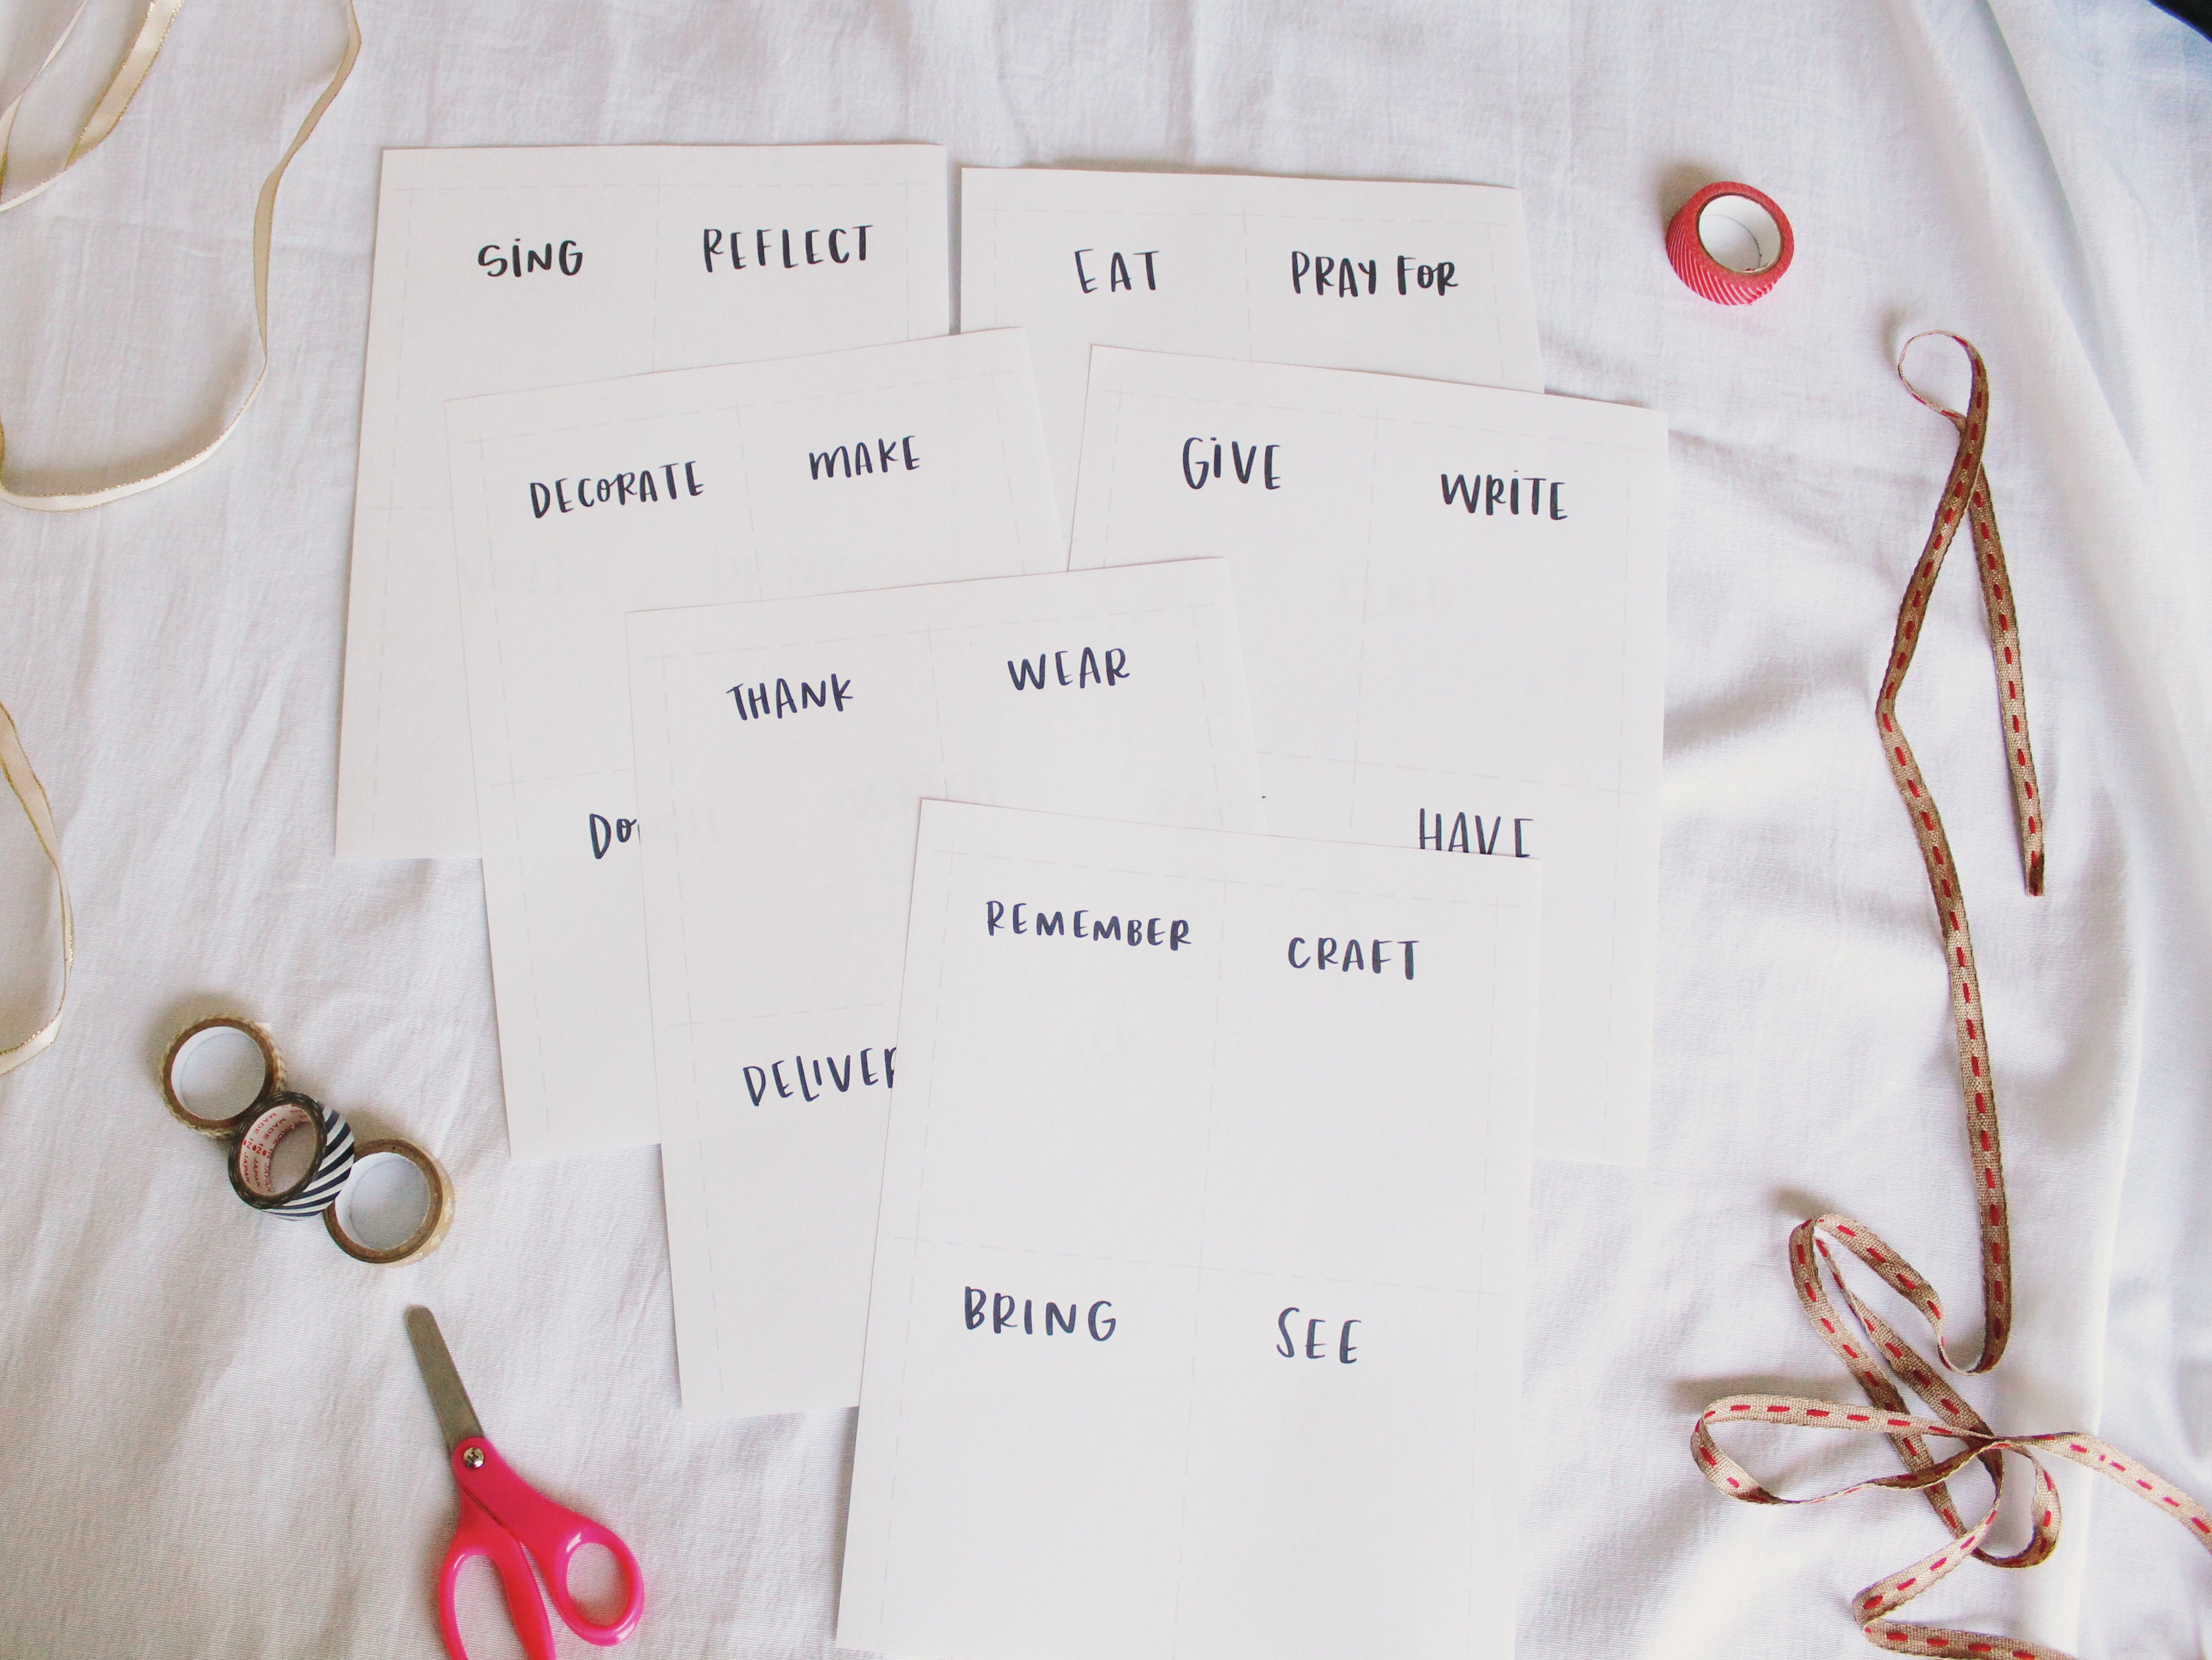 SING REFLECT
EAT PRAY FOR
DECORATE MAKE
GIVE WRITE
THANK WEAR
HAVE
REMEMBER CRAFT
DELIVER
BRING SEE
MADE IN JAPAN